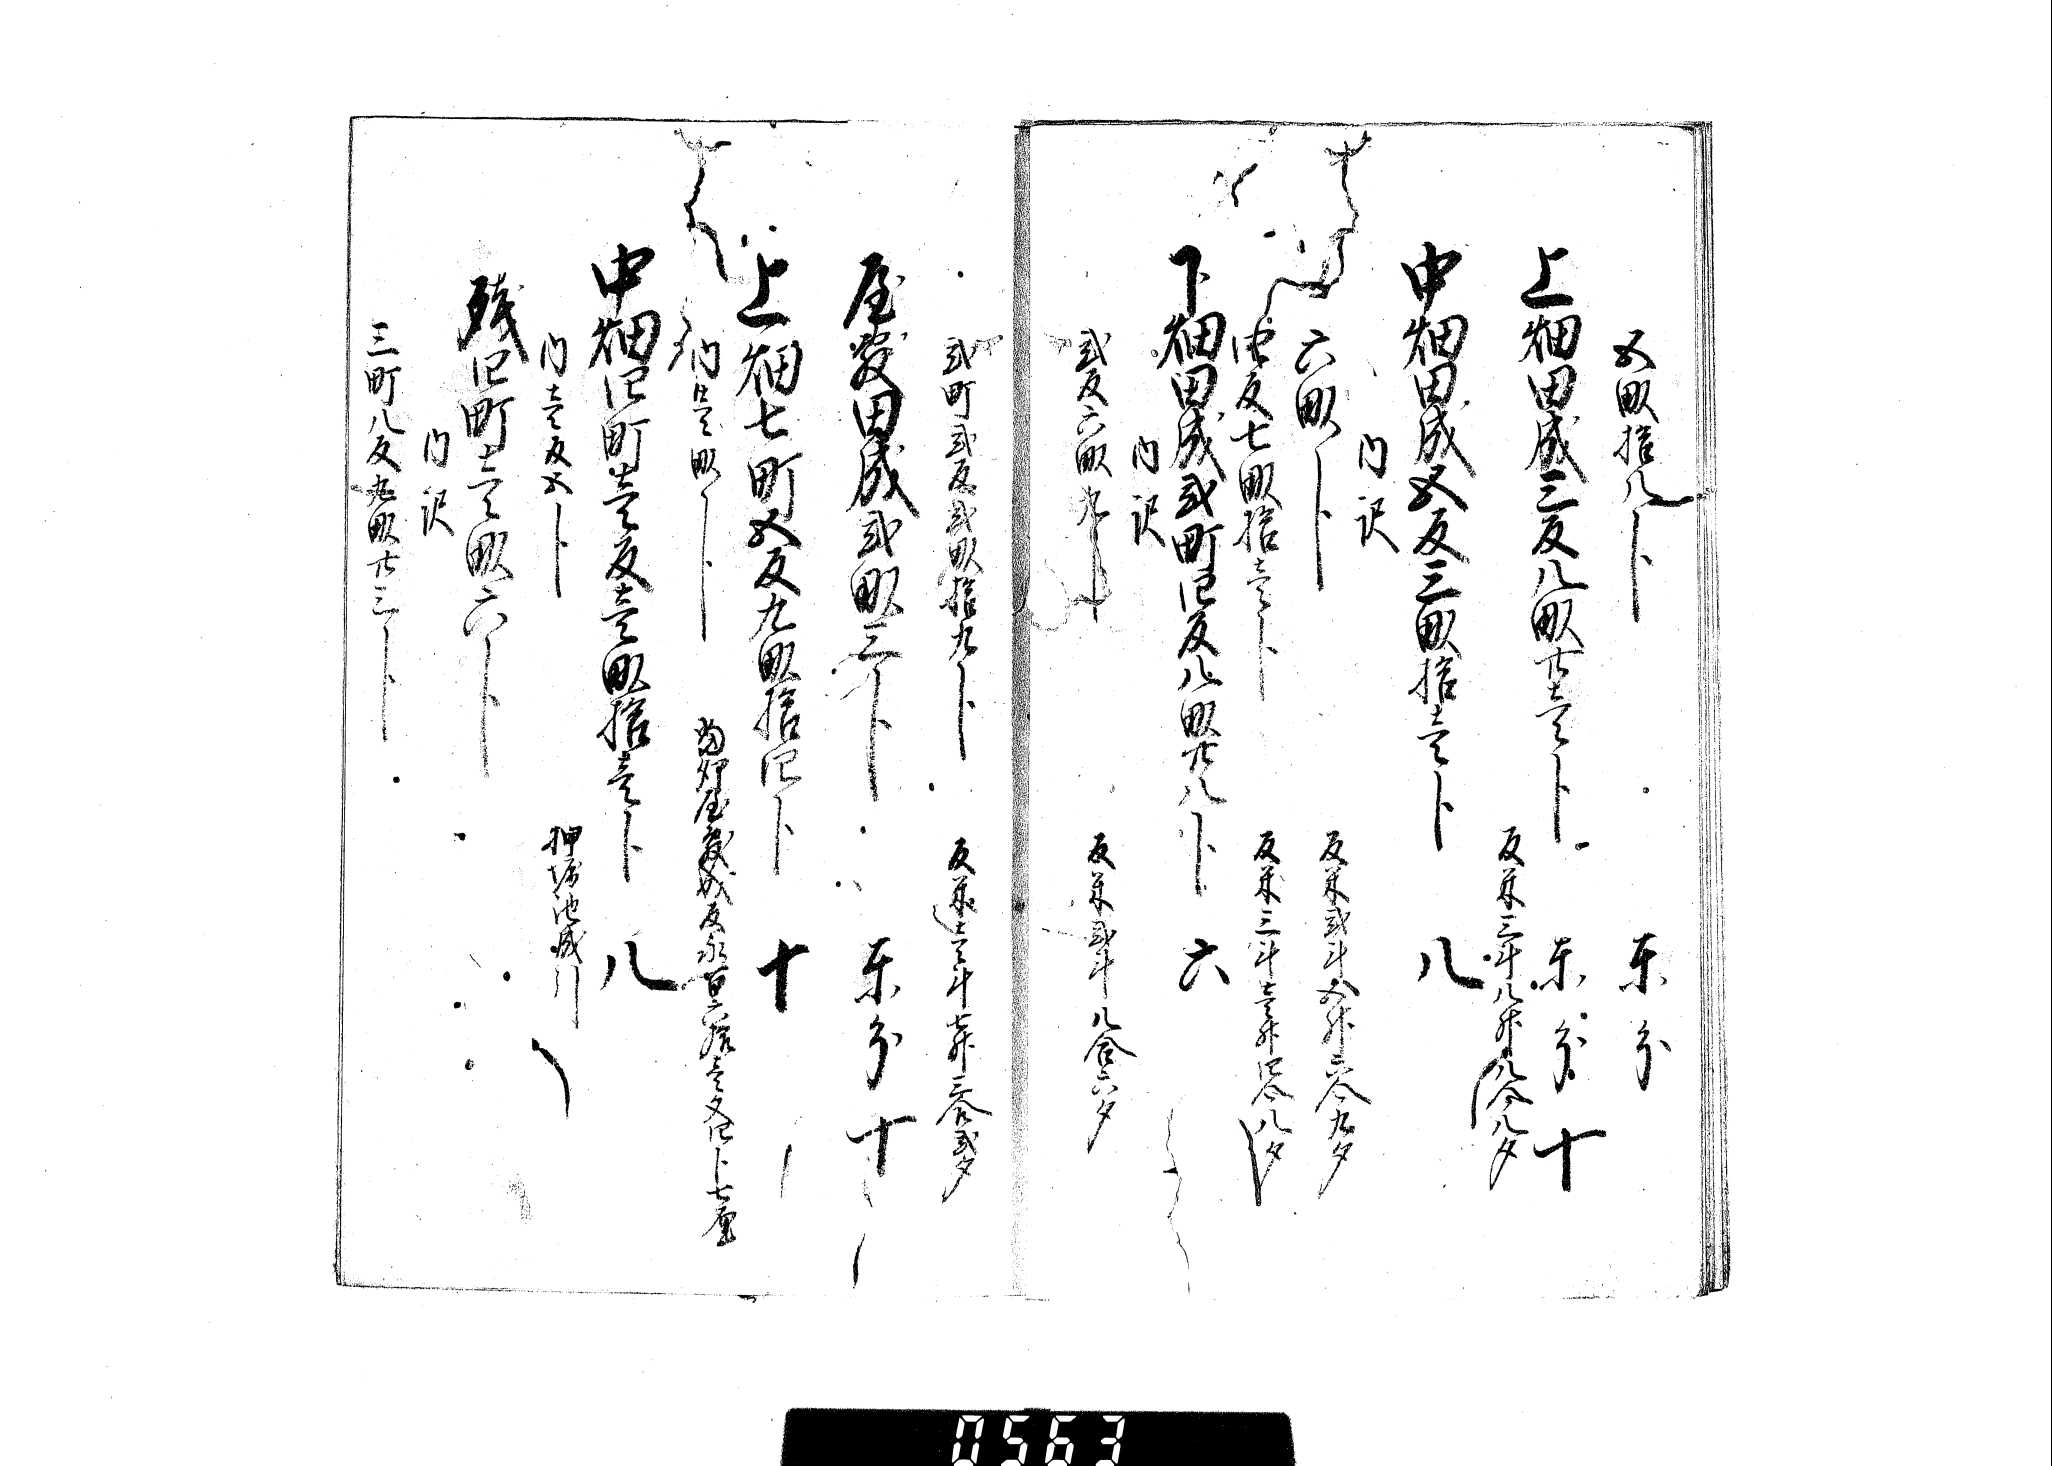 五畝拾八卜 来分
上畑田成三反八畝廿壱卜 来分 十
反米三斗八升八合八夕
中畑田成五反三畝拾壱卜 八
内訳
六畝卜 反米弐斗五升六合九夕
四反七畝拾壱卜 反米三斗壱升四合八夕
下畑田成弐町四反八畝廿八卜 六
内訳
弐反六畝九卜 反米弐斗八合六夕
弐町弐反弐畝拾九卜 反米壱斗七升三合弐夕
屋敷田成弐畝三卜 来分 十
上畑七町五反九畝拾四卜 十
内壱畝卜 屋敷成反永百六拾壱文四卜七厘
中畑四町壱反壱畝拾壱卜 八
内壱反五卜 押堀池成引
残四町壱畝六卜
内訳
三町八反九畝廿三卜
0563